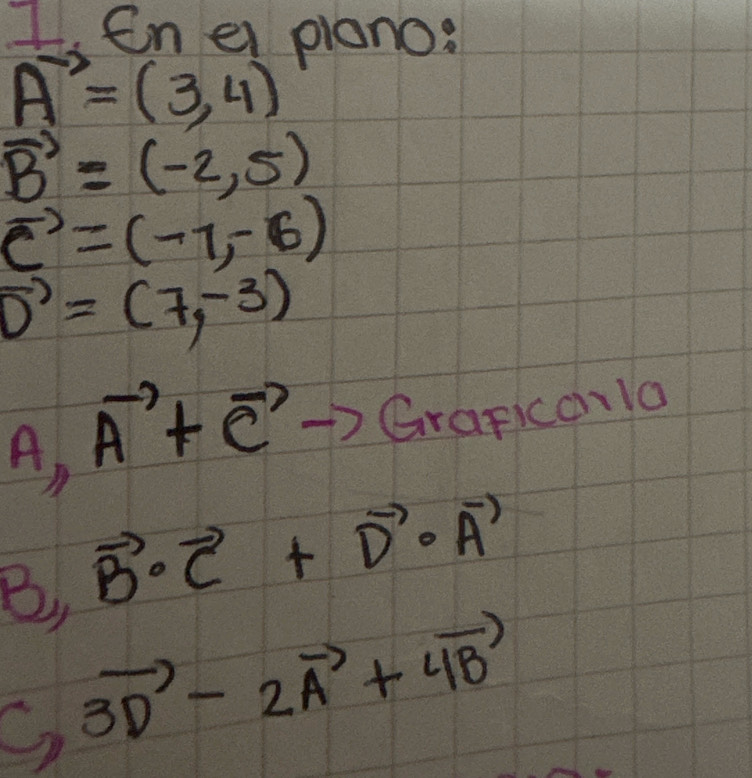 I. En el plano:
A⃗ = (3,4)
B⃗ = (-2,5)
C⃗ = (-1,-6)
D⃗ = (7,-3)
A)) A⃗ + C⃗ → Graficarla
B)) B⃗ · C⃗ + D⃗ · A⃗
C)) 3D⃗ - 2A⃗ + 4B⃗